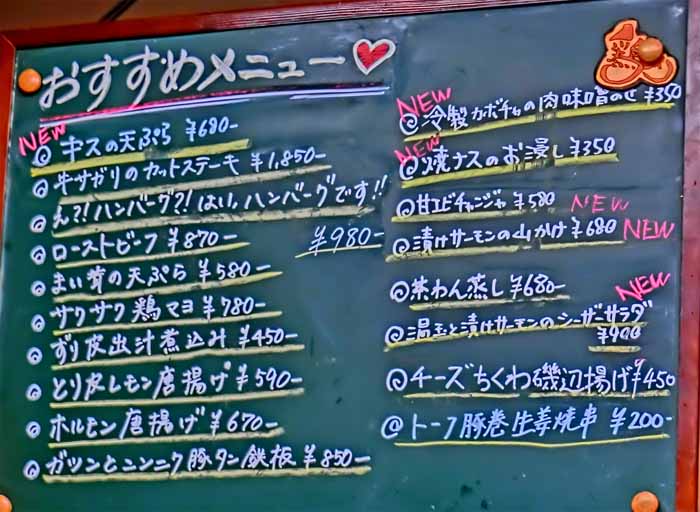 おすすめメニュー
NEW
◎キスの天ぷら ¥680-
◎牛サガリのカットステーキ ¥1,850-
◎え?!ハンバーグ?!はい。ハンバーグです!!
¥980-
◎ローストビーフ ¥870-
◎まい茸の天ぷら ¥580-
◎サクサク鶏マヨ ¥780-
◎ずり皮出汁煮込み ¥450-
◎とり皮レモン唐揚げ ¥590-
◎ホルモン唐揚げ ¥670-
◎ガツンとニンニク豚タン鉄板 ¥850-
NEW
◎冷製カボチャの肉味噌のせ ¥350
NEW
◎焼ナスのお浸し ¥350
◎甘エビチャンジャ ¥580
NEW
◎漬けサーモンの山かけ ¥680
NEW
◎茶わん蒸し ¥680-
NEW
◎温玉と漬けサーモンのシーザーサラダ
¥900
◎チーズちくわ磯辺揚げ ¥450
◎トーフ豚巻生姜焼串 ¥200-